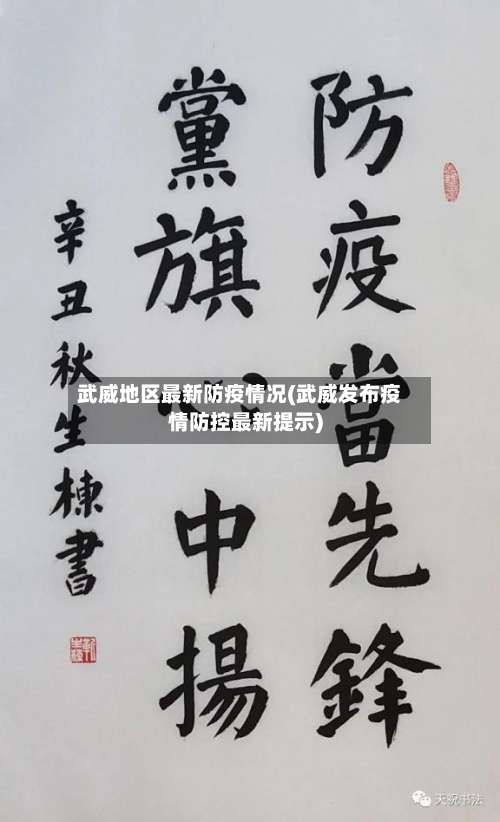 防疫當先鋒
黨旗中揚
辛丑秋生棟書
武威地区最新防疫情况(武威发布疫
情防控最新提示)
天祝书法